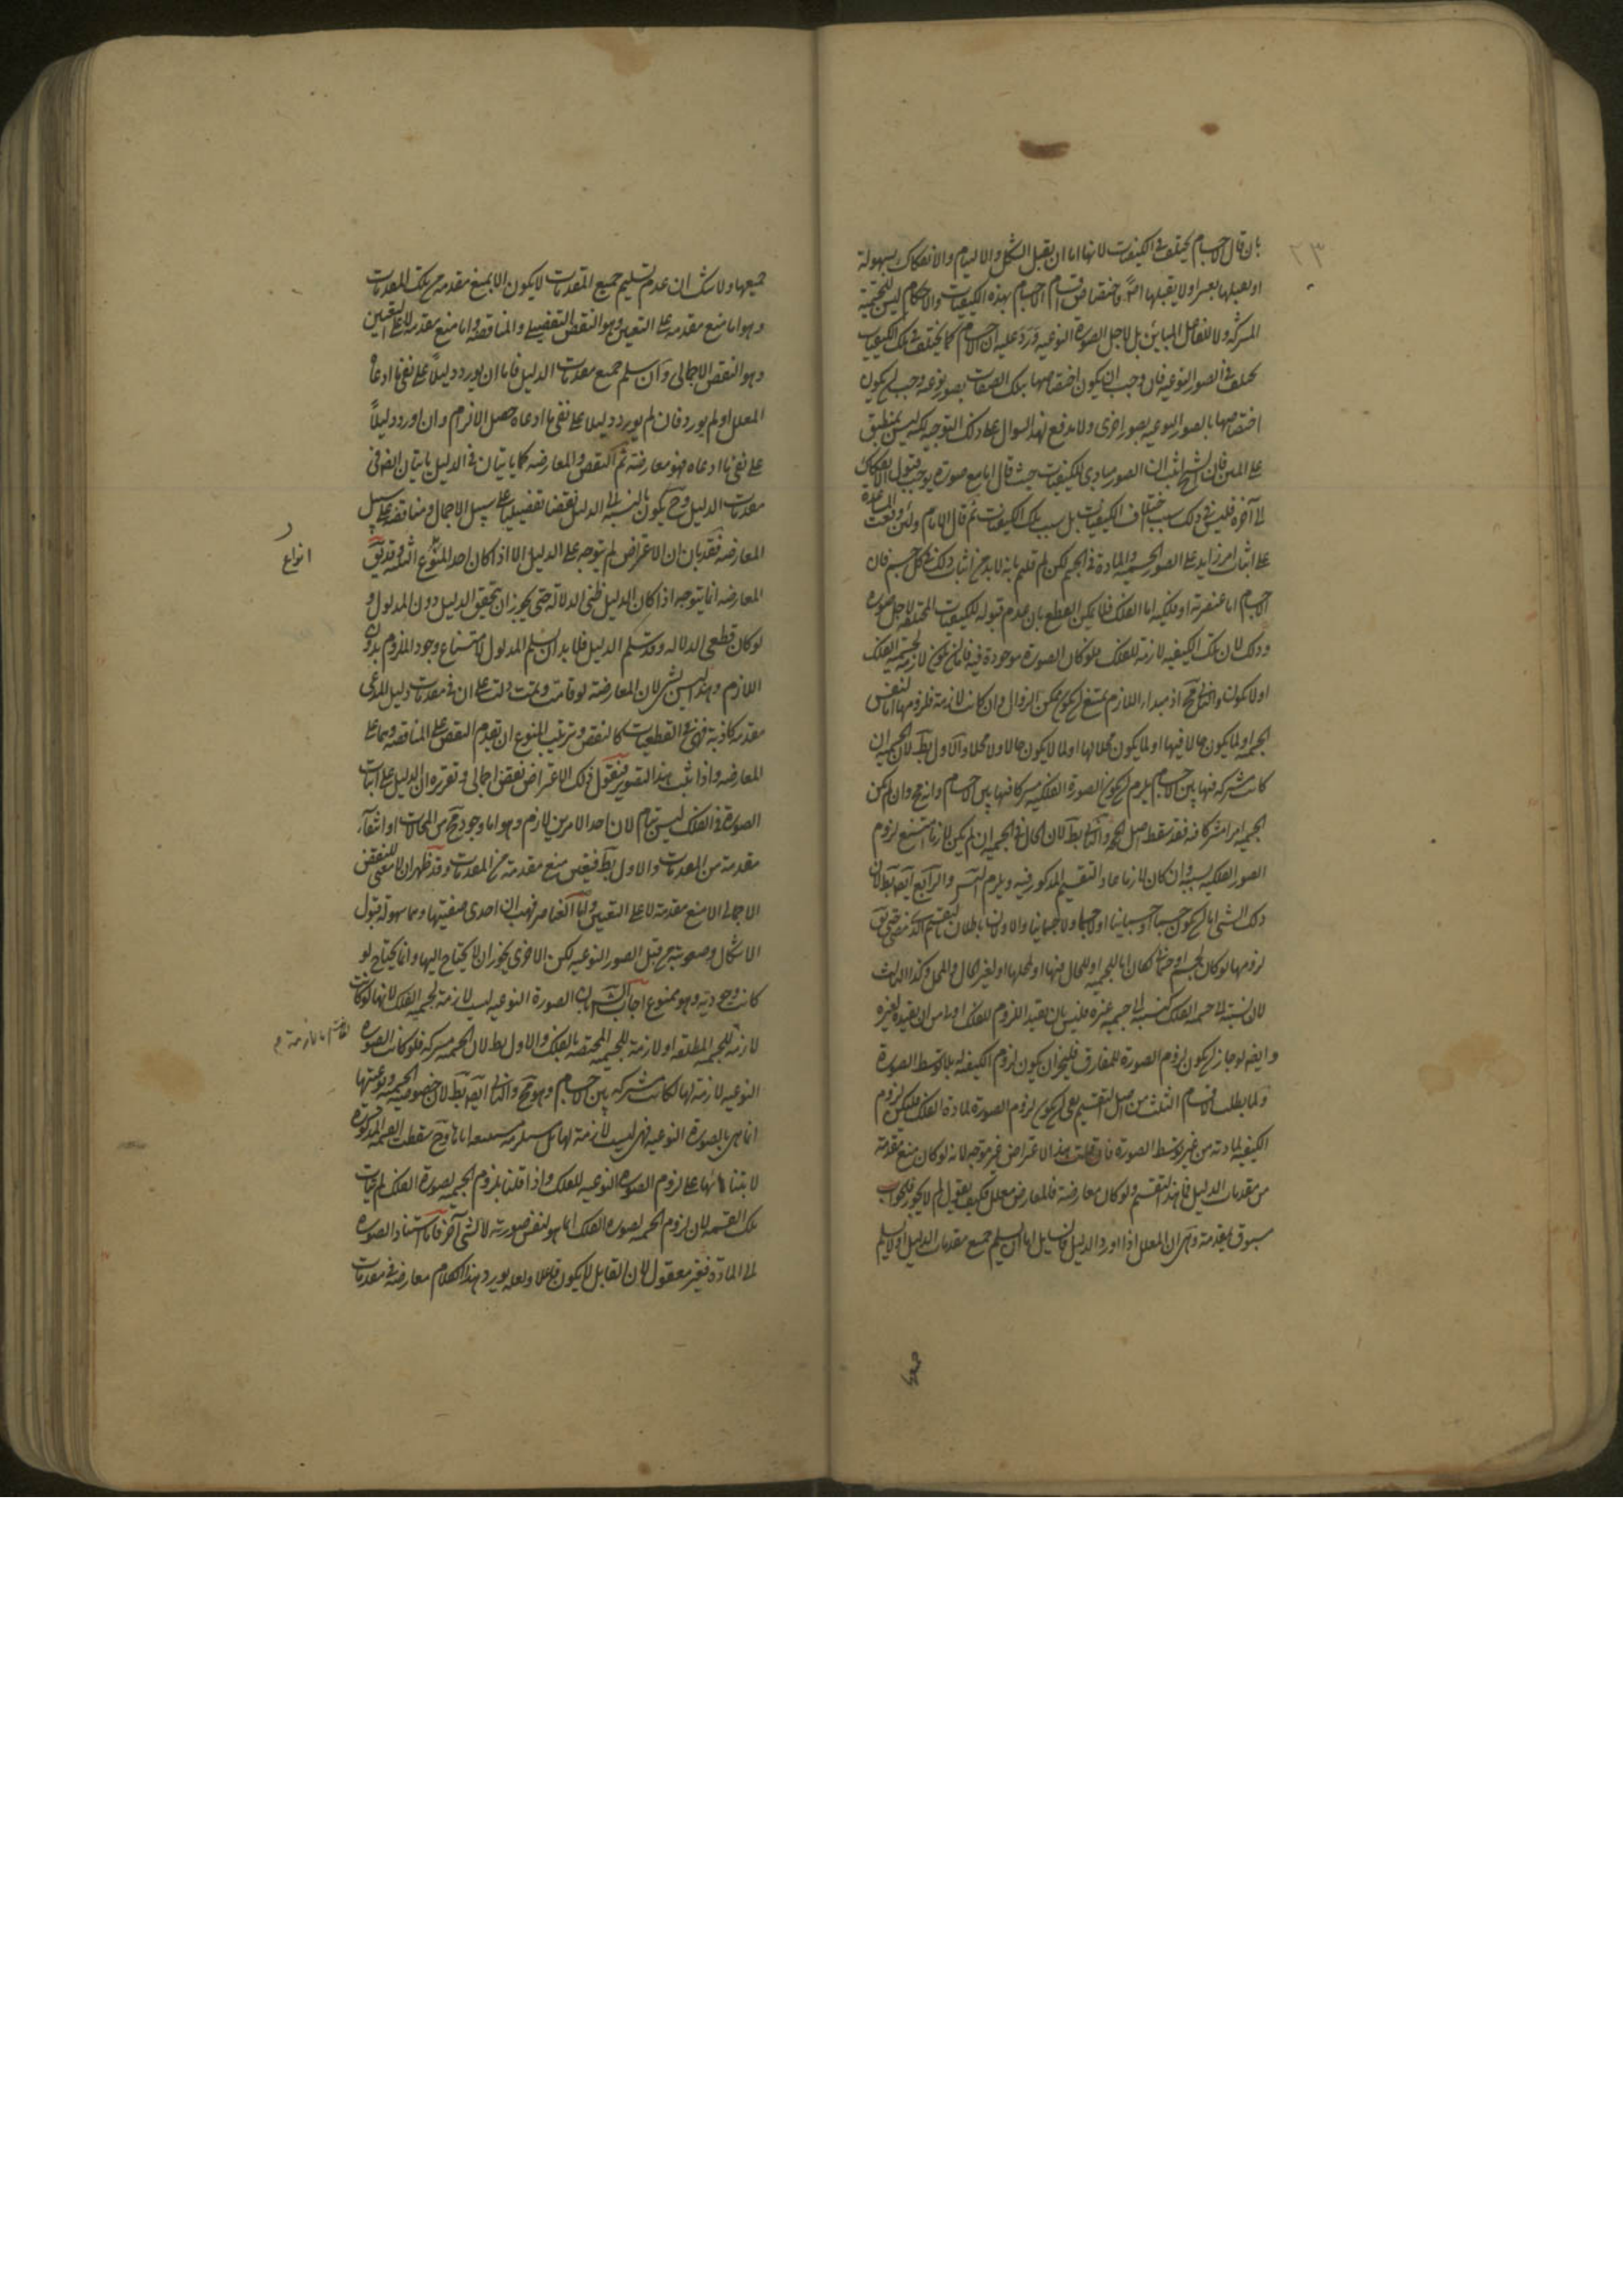 ٢٣
بان قال الاجسام يختلف فى الكيفيات لانها اما ان يقبل الشكل والالتيام والانفكاك بسهولة
او يقبلها بعسر او لا يقبلها اصلا واختصاص الاجسام بهذه الكيفيات والاحكام ليس للجسمية
المشتركة ولا للفاعل المباين بل لاجل الصورة النوعية ورد عليه ان الاجسام كما يختلف فى تلك الكيفيات
يختلف فى الصور النوعية فان وجب ان يكون اختصاصها بتلك الصفات بصور نوعية وجب ان يكون
اختصاصها بالصور النوعية بصور اخرى ولا يدفع هذا السوال على ذلك التوجيه لكنه ليس بمنطبق
على المتن فان الشيخ اثبت ان الصور مبادى للكيفيات حيث قال اما مع صورة يوجب قبول الانفكاك
الى آخره فليس فى ذلك سبب اختلاف الكيفيات بل سبب تلك الكيفيات ثم قال الامام ولئن وقعت المساعدة
على اثبات امر زايد على الصور الجسمية والمادة فى الجسم لكن لم قلتم بانه لا بد من اثبات ذلك فى كل جسم فان
الاجسام اما عنصرية او فلكية اما الفلك فلا يمكن القطع بان عدم قبوله للكيفيات المختلفة لاجل صورة
وذلك لان تلك الكيفية لازمة للفلك فلو كان الصورة موجودة فيه فاما ان يكون لازمة لجسمية الفلك
او لا يكون والثانى مح اذ مبداء اللازم يمتنع ان يكون ممكن الزوال وان كانت لازمة فلزومها اما لنفس
الجسمية او لما يكون حالا فيها او لما يكون محلا لها او لما لا يكون حالا ولا محلا والاول بط لان الجسمية ان
كانت مشتركة فيها بين الاجسام يلزم ان يكون الصورة الفلكية مشتركا فيها بين الاجسام وانه مح وان لم يكن
الجسمية امرا مشتركا فيه فقد سقط اصل الحجة والثانى بط لان الحال فى الجسمية ان لم يكن لازما امتنع لزوم
الصور الفلكية بسببه وان كان لازما عاد التقسيم المذكور فيه ويلزم التس والرابع ايضا بط لان
ذلك الشى اما ان يكون جسما او جسمانيا او لا جسما ولا جسمانيا والاولان باطلان
لزومها لو كان لجسم او جسمانى لكان اما للجسمية او للحال فيها او لمحلها او لغير الحال والمحل وكذا الثالث
لان نسبته الى جسمية الفلك كنسبته الى جسمية غيره فليس بان يفيد اللزوم للفلك اولى من ان يفيده لغيره
وايضا لو جاز ان يكون لزوم الصورة للمفارق فليجز ان يكون لزوم الكيفية له بلا توسط الصورة
ولما بطلت الاقسام الثلث من اصل التقسيم بقى ان يكون لزوم الصورة لمادة الفلك فليكن لزوم
الكيفية لمادته من غير توسط الصورة فان قلت هذا الاعتراض غير موجه لانه لو كان منع مقدمة
من مقدمات الدليل فما هذا التقسيم ولو كان معارضة فالمعارض معلل فكيف يقول لم لا يجوز فالجواب
مسبوق بمقدمة وهى ان المعلل اذا اورد الدليل فالسايل اما ان يسلم جميع مقدمات الدليل او لا يسلم
جميعها ولا شك ان عدم تسليم جميع المقدمات لا يكون الا بمنع مقدمة من تلك المقدمات
وهو اما منع مقدمة على التعيين وهو النقض التفصيلى والمناقضة واما منع مقدمة لا على التعيين
وهو النقض الاجمالى وان سلم جميع مقدمات الدليل فاما ان يورد دليلا على نفى ما ادعاه
المعلل او لم يورد فان لم يورد دليلا على نفى ما ادعاه حصل الالزام وان اورد دليلا
على نفى ما ادعاه فهو معارضة ثم النقض والمعارضة كما ياتيان فى الدليل ياتيان ايضا فى
مقدمات الدليل وح يكون بالنسبة الى الدليل نقضا تفصيليا على سبيل الاجمال ومناقضة على سبيل
المعارضة فقد بان ان الاعتراض لم يتوجه على الدليل الا اذا كان احد المنوع الثلثة وقد يق
انواع
المعارضة انما يتوجه اذا كان الدليل ظنى الدلالة حتى يجوز ان يتحقق الدليل دون المدلول و
لو كان قطعى الدلالة وقد سلم الدليل فلا بد ان يسلم المدلول لامتناع وجود الملزوم بدون
اللازم وهذا ليس بشى لان المعارضة لو قامت وتمت دلت على ان فى مقدمات دليل المدعى
مقدمة كاذبة فهى فى القطعيات كالنقض وترتيب المنوع ان يقدم النقض على المناقضة وهما على
المعارضة واذا ثبت هذا التصوير فنقول ذلك الاعتراض نقض اجمالى وتقريره ان الدليل على اثبات
الصورة فى الفلك ليس بتام لان احد الامرين لازم وهو اما وجود مح من المحالات او انتفاء
مقدمة من المقدمات والاول بط فتعين منع مقدمة من المقدمات وقد ظهر ان لا معنى للنقض
الاجمالى الا منع مقدمة لا على التعيين واما العناصر فهب ان احدى صفتيها وهما سهولة قبول
الاشكال وصعوبته من قبل الصور النوعية لكن الاخرى يجوز ان لا يحتاج اليها وانما يحتاج لو
كانت وجودية وهو ممنوع اجاب الش بان الصورة النوعية ليست لازمة لجسمية الفلك لانها لو كانت
لازمة للجسمية المطلقة او لازمة للجسمية المختصة بالفلك والاول بط لان الجسمية مشتركة فلو كانت الصورة
النوعية لازمة لها لكانت مشتركة بين الاجسام وهو مح والثانى ايضا بط لان خصوصية الجسمية ونوعيتها
انما هى بالصورة النوعية فهى ليست لازمة لها بل وح سقطت القسمة المذكورة
لابتنائها على لزوم الصورة النوعية للفلك واذا قلنا بلزوم الجسمية لصورة الفلك لم يات
تلك القسمة لان لزوم الجسمية لصورة الفلك انما هو لنفس صورته لا لشى آخر فاما استناد الصورة
الى المادة فغير معقول لان القابل لا يكون فاعلا ولعله يورد هذا الكلام معارضة فى مقدمات